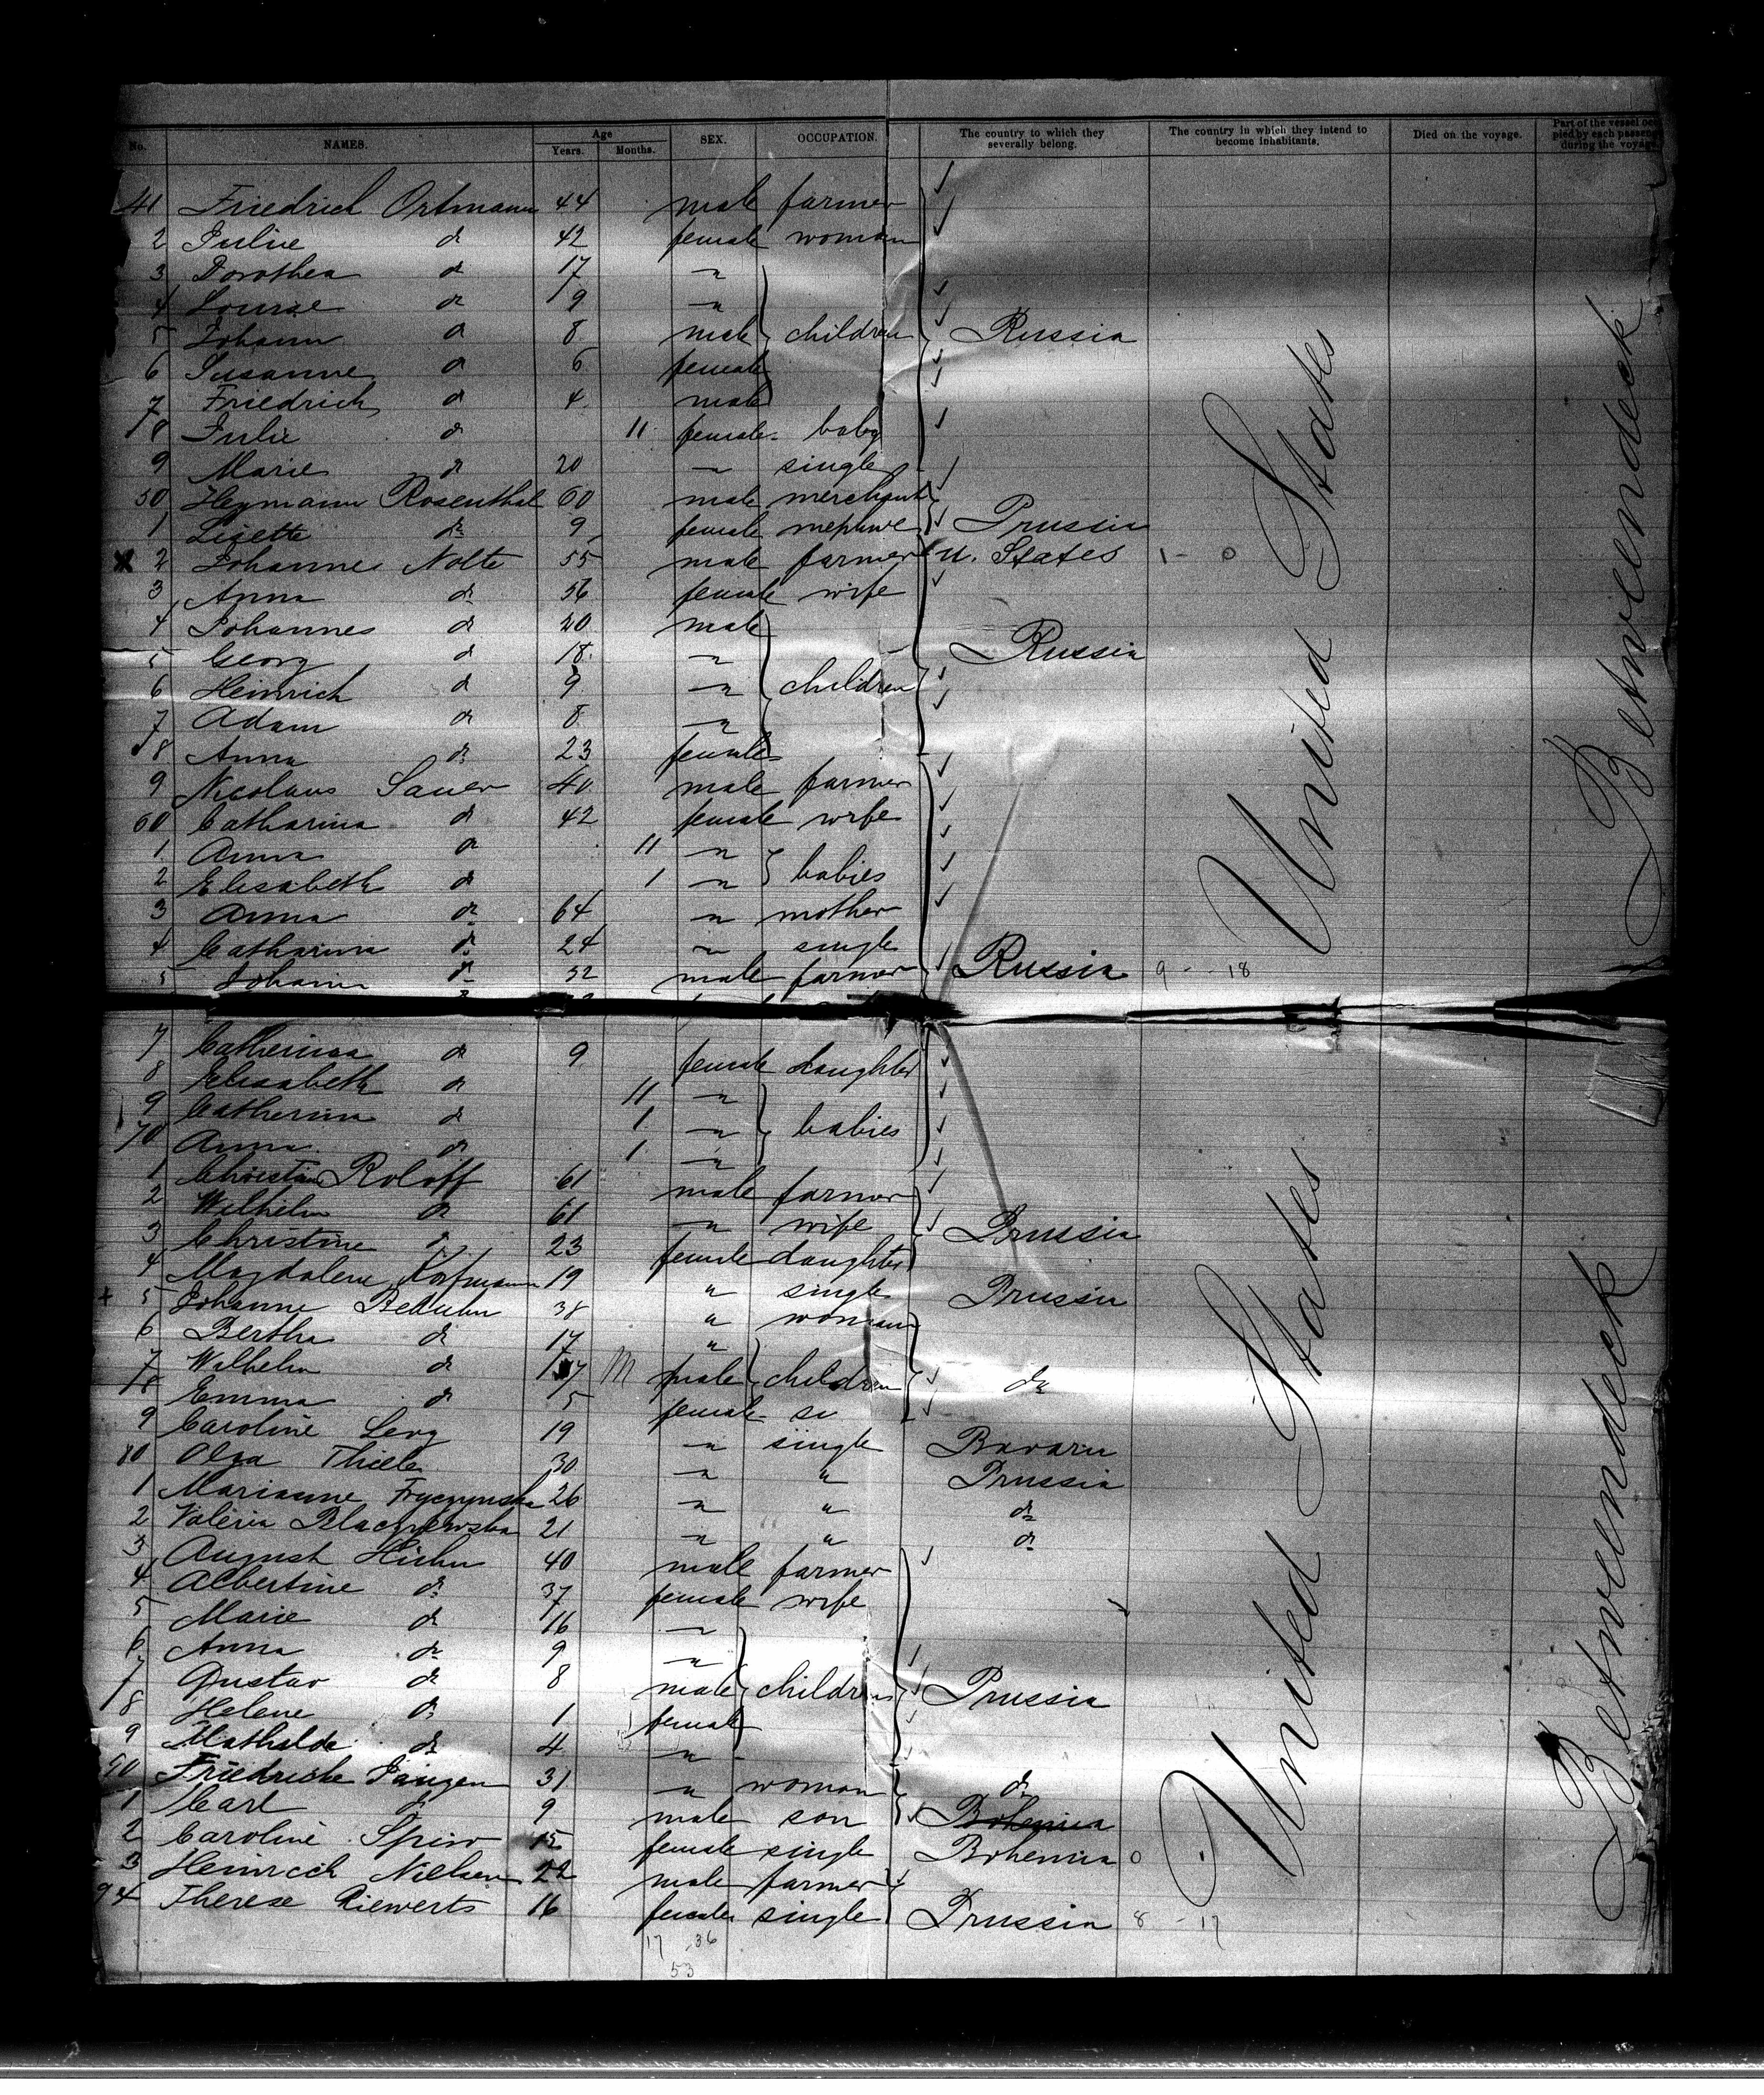 No. NAMES. Age Years. Months. SEX. OCCUPATION. The country to which they severally belong. The country in which they intend to become inhabitants. Died on the voyage. Part of the vessel occupied by each passenger during the voyage.
41 Friedrich Ortmann 44 male farmer
2 Julie do 42 female woman
3 Dorothea do 17 "
4 Louise do 9 "
5 Johann do 8 male children Russia
6 Susanne do 6 female
7 Friedrich do 4 male
8 Julie do 11 female baby
9 Marie do 20 " single
50 Heymann Rosenthal 60 male merchant
1 Lisette do 9 female Prussia
2 Johannes Nolte 55 male farmer U. States 1 - 0
3 Anna do 56 female wife
4 Johannes do 20 male
5 Georg do 18 " Russia
6 Heinrich do 9 " children
7 Adam do 8 "
8 Anna do 23 female
9 Nicolaus Sauer 40 male farmer
60 Catharina do 42 female wife
1 Anna do 11 "
2 Elisabeth do 1 " babies
3 Anna do 64 " mother
4 Catharina do 24 " single
5 Johann do 32 male farmer Russia 9 - 18
7 Catherina do 9 female daughter
8 Elisabeth do 11 "
9 Catherina do 1 " babies
70 Anna do 1 "
1 Christian Roloff 61 male farmer
2 Wilhelm do 61 " wife Prussia
3 Christine do 23 female daughter
4 Magdalene Korfmann 19 " single Prussia
5 Johanne 38 " woman
6 Bertha do 17 "
7 Wilhelm do 7 M male children do
8 Emma do 5 female
9 Caroline Levy 19 " single Bavaria
80 Olga Thiele 30 " " Prussia
1 Marianne 26 " " do
2 Valeria 21 " " do
3 August 40 male farmer
4 Albertine do 37 female wife
5 Marie do 16 "
6 Anna do 9 "
7 Gustav do 8 male children Prussia
8 Helene do 1 female
9 Mathilde do 4 "
90 Friedricke 31 " woman do
1 Carl do 9 male son Bohemia
2 Caroline 15 female single Bohemia 0
3 Heinrich Nielsen 22 male farmer
94 Therese Riewerts 16 female single Prussia 8 - 17
17 36
53
United States
United States
Betweendeck
Betweendeck